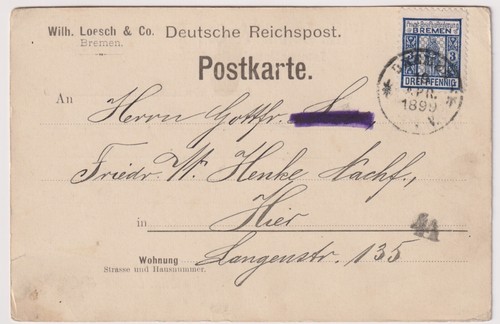 Wilh. Loesch & Co. Deutsche Reichspost.
Bremen.
BREMEN
3
DREIPFENNIG
BREMEN
APR.
1899
V.
Postkarte.
An Herrn Gottfr.
Friedr. W. Henke Nachf.,
in Hier
4A
Langenstr. 135
Wohnung
Strasse und Hausnummer.